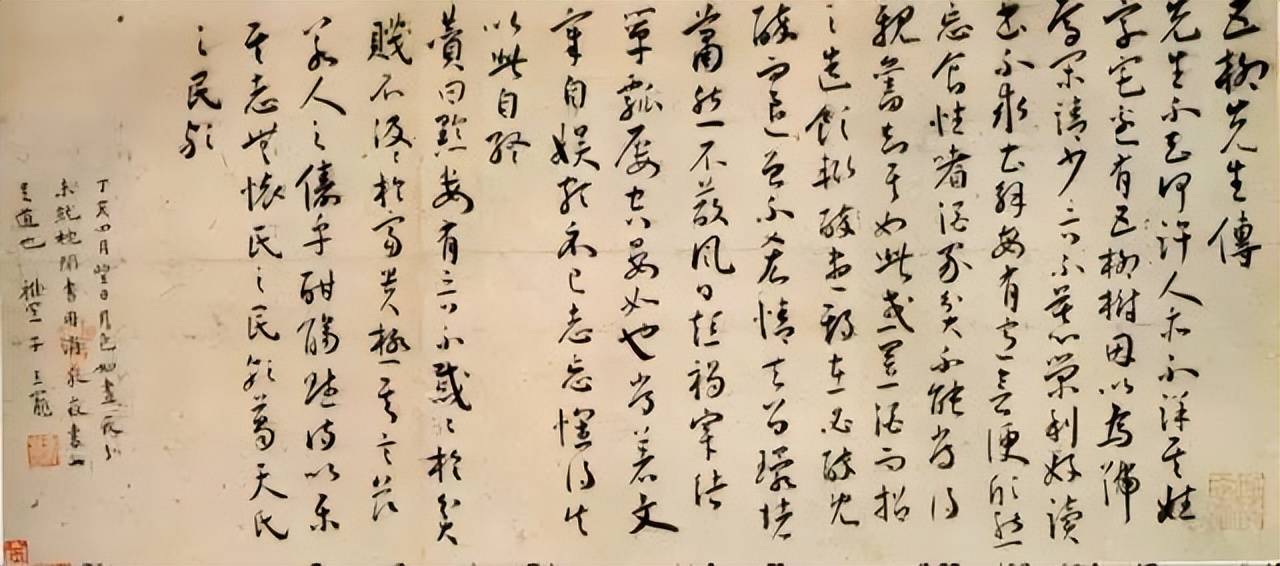 五柳先生傳
先生不知何許人亦不詳其姓
字宅邊有五柳樹因以為號
焉閑靖少言不慕榮利好讀
書不求甚解每有會意便欣然
忘食性嗜酒家貧不能常得
親舊知其如此或置酒而招
之造飲輒醉盡期在必醉既
醉而退曾不吝情去留環堵
蕭然不蔽風日短褐穿結
簞瓢屢空晏如也常著文
章自娛頗示己志忘懷得失
以此自終
贊曰黔婁有言不慼慼於貧
賤不汲汲於富貴極其言茲
若人之儔乎酣觴賦詩以樂
其志無懷氏之民歟葛天氏
之民歟
丁亥四月望日月色如晝夜分
未就枕閒書用
道也 雅宜子王寵